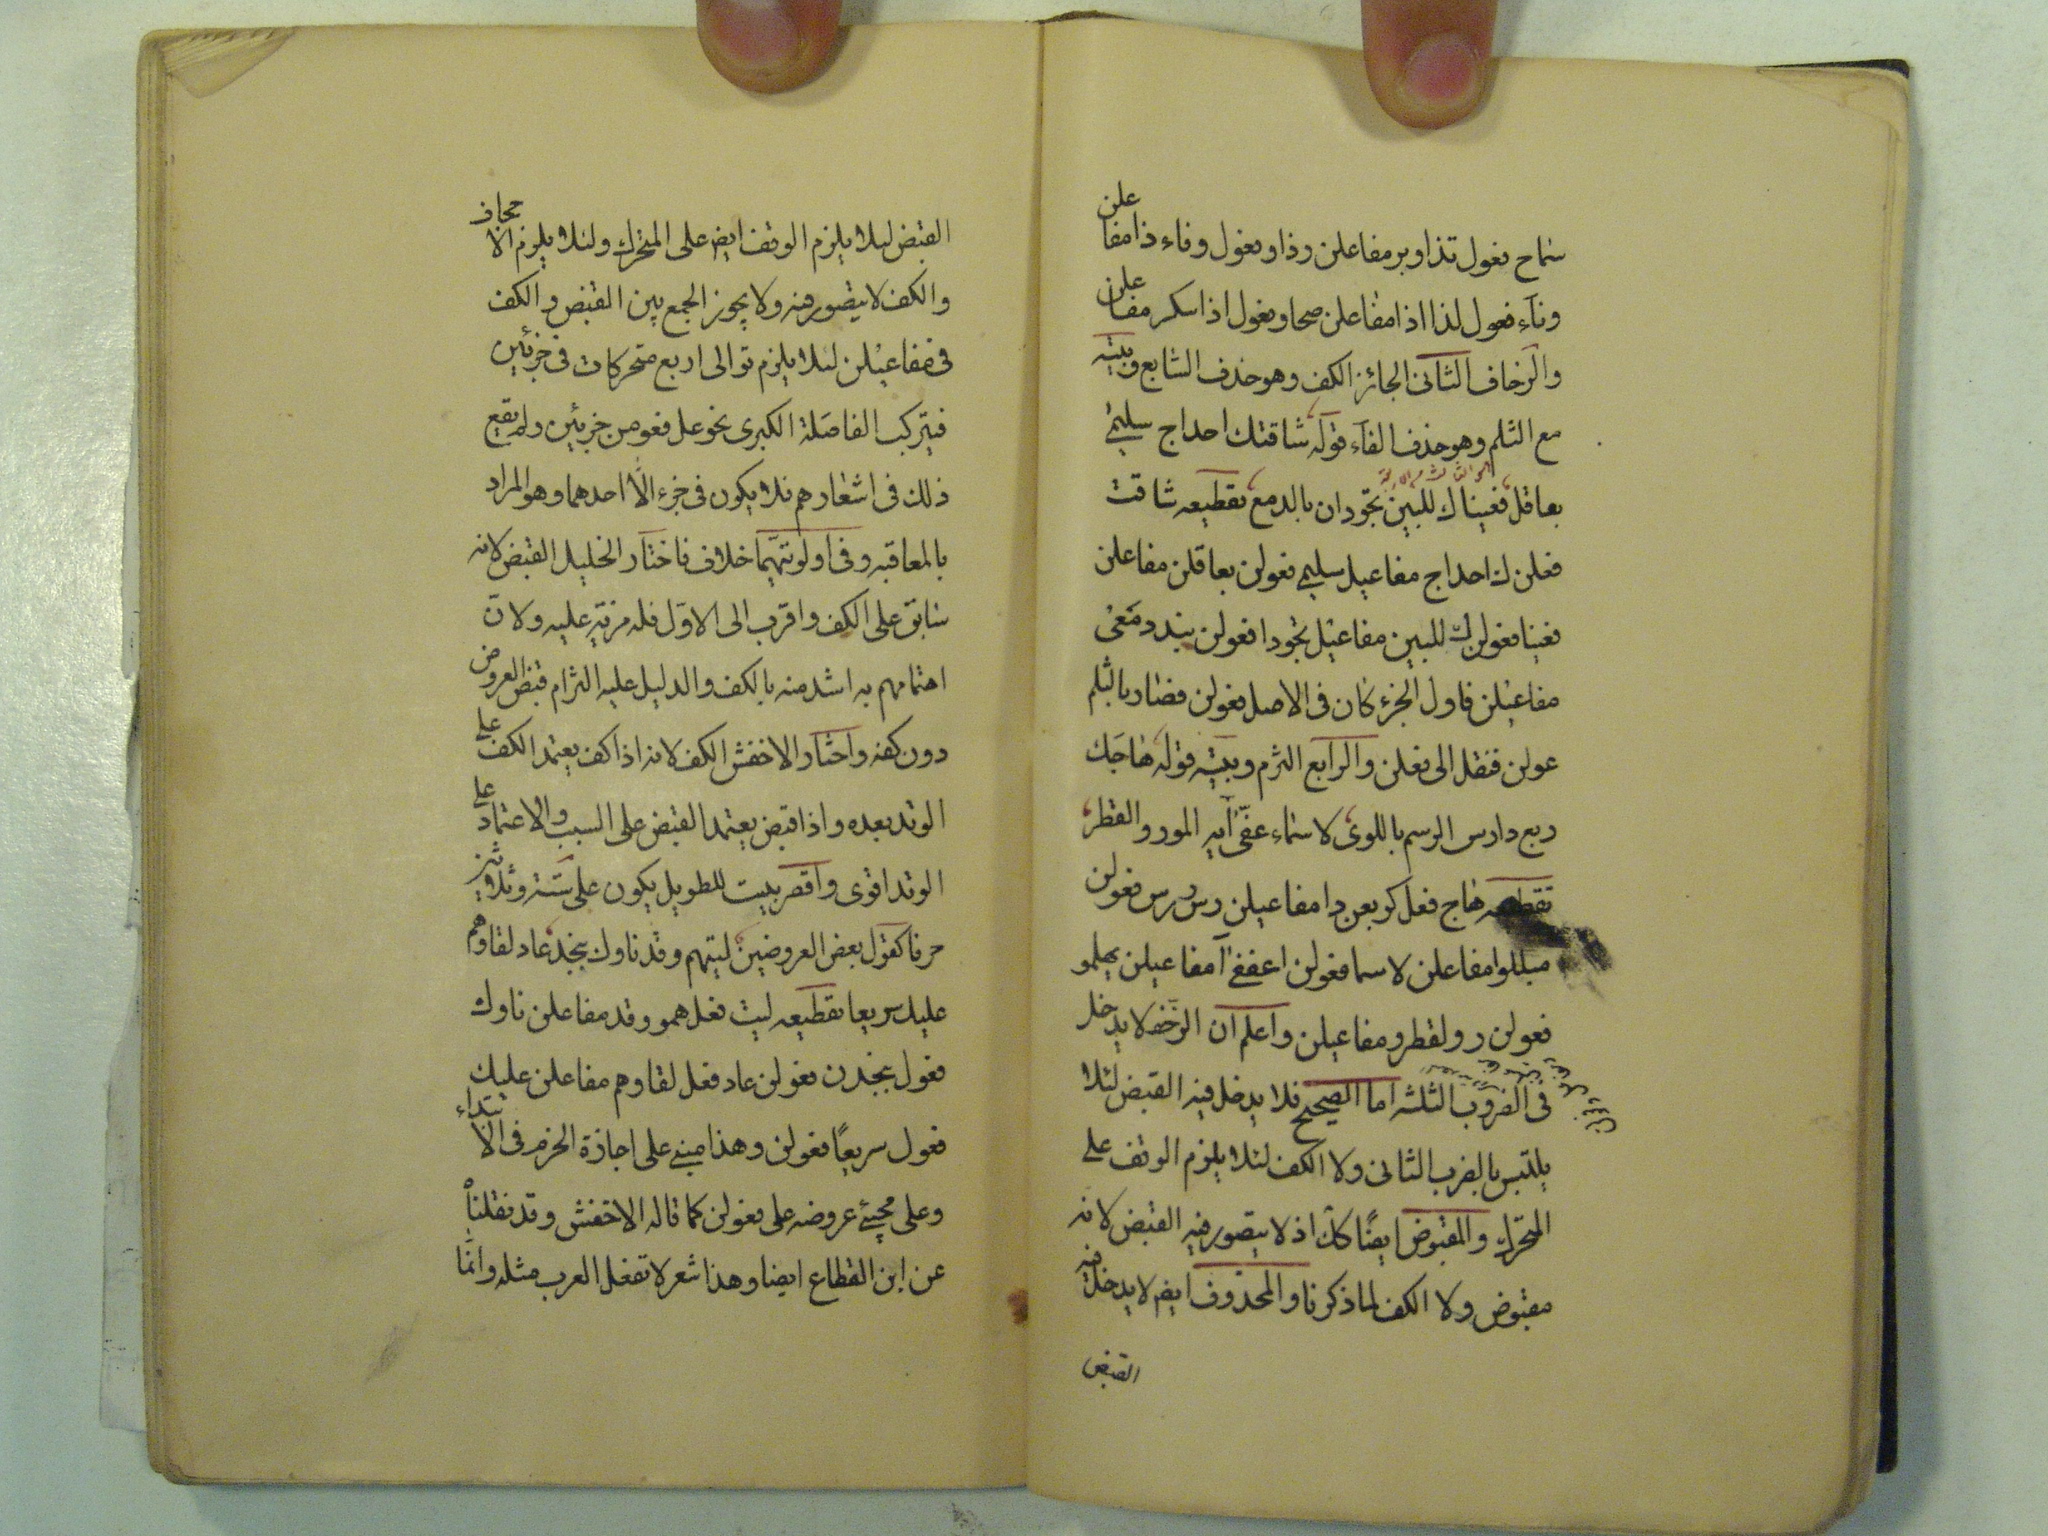 سماح فعول تذاوبر مفاعلن وذا وفعول وفاء ذا مفاعلن
ونآء فعول لذا اذا مفاعلن صحا وفعول اذا سكر مفاعلن
والزخاف الثانى الجائز الكف وهو حذف السّابع وبيته
مع الثلم وهو حذف الفآء قوله شاقتك احداج سليمٰى
بعاقل فعيناك للبين تجودان بالدمع تقطيعه شاقت
فعلن ك احداج مفاعيل سليمى فعولن بعاقلن مفاعلن
فعينا فعولن ك للبين مفاعيل تجودا فعولن ببددمعى
مفاعيلن فاول الجزء كان فى الاصل فعولن فصار بالثلم
عولن فنقل الى فعلن والرابع الثرم وبيته قوله هاجك
ربع دارس الرسم باللوى لاسماء عفّى آيه المور والقطر
تقطيعه هاج فعل كربعن دا مفاعيلن رس رس فعولن
مبللوا مفاعلن لاسما فعولن اعففى آ مفاعيلن يهلمو
فعولن رولقطرو مفاعيلن واعلم ان الزحف لا يدخل
فى الضروب الثلثه اما الصحيح فلا يدخل فيه القبض لئلا
يلتبس بالضرب الثانى ولا الكف لئلا يلزم الوقف على
المتحرّك والمقبوض ايضًا كك اذ لا يتصور فيه القبض لانه
مقبوض ولا الكف لما ذكرنا والمحذوف ايض لا يدخل فيه
القبض
القبض لئلا يلزم الوقف ايض على المتحرك ولئلا يلزم الاجحاف
والكف لا يتصور فيه ولا يجوز الجمع بين القبض والكف
فى مفاعيلن لئلا يلزم توالى اربع متحركات فى جزئين
فيتركب الفاصلة الكبرى نحو عل فعو من جزئين ولم يقع
ذلك فى اشعارهم فلا يكون فى جزء الّا احدهما وهو المراد
بالمعاقبه وفى اولويّتهما خلاف فاختار الخليل القبض لانه
سابق على الكف واقرب الى الاوّل فله مزية عليه ولانّ
اهتمامهم به اشد منه بالكف والدليل عليه التزام قبض العروض
دون كفه واختار الاخفش الكف لانه اذا كف يعتمد الكف على
الوتد بعده واذا قبض يعتمد القبض على السبب والاعتماد على
الوتد اقوى واقصر بيت للطويل يكون على ستّة وثلاثين
حرفا كقول بعض العروضين ليتهم وقد ناوك بنجد عاد لقاوهم
عليك سريعا تقطيعه ليت فعل همو وقد مفاعلن ناوك
فعول بنجدن فعولن عاد فعل لقاوهم مفاعلن عليك
فعول سريعًا فعولن وهذا مبنى على اجازة الخرم فى الابتداء
وعلى مجيئ عروضه على فعولن كما قاله الاخفش وقد نقلناه
عن ابن القطاع ايضا وهذا شعر لا تفعل العرب مثله وانّما